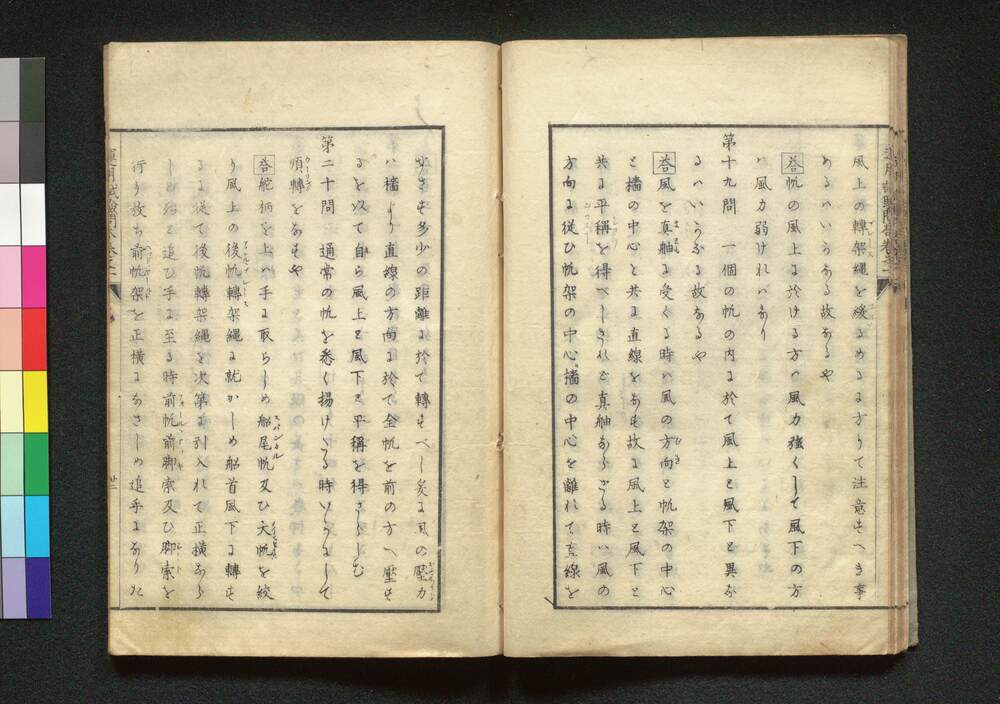 風上の轉架縄を緩るめるに方りて注意すへき事
あるハいうなる故なるや
答 帆の風上に於ける方ハ風力強くして風下の方
ハ風力弱けれハなり
第十九問 一個の帆の内に於て風上と風下と異な
るハいうなる故なるや
答 風を真舳に受くる時ハ風の方向と帆架の中心
と檣の中心と共に直線をなす故に風上と風下と
共に平稱を得べしされど真舳ならざる時ハ風の
方向に從ひ帆架の中心檣の中心を離れて直線を
少さず多少の距離に於て轉すべし爰に風の壓力
ハ檣より直線の方向に於て全帆を前の方へ壓す
るを以て自ら風上と風下と平稱を得さらしむ
第二十問 通常の帆を悉く揚けたる時いうにして
順轉をなすや
答 舵柄を上ハ手に取らしめ船尾帆及ひ大帆を絞
り風上の後帆轉架縄に就かしめ船首風下に轉す
るに従て後帆轉架縄を次第に引入れて正横なら
しめ殆と追ひ手に至る時前帆前脚索及ひ脚索を
行り放ち前帆架を正横になさしめ追手になりた